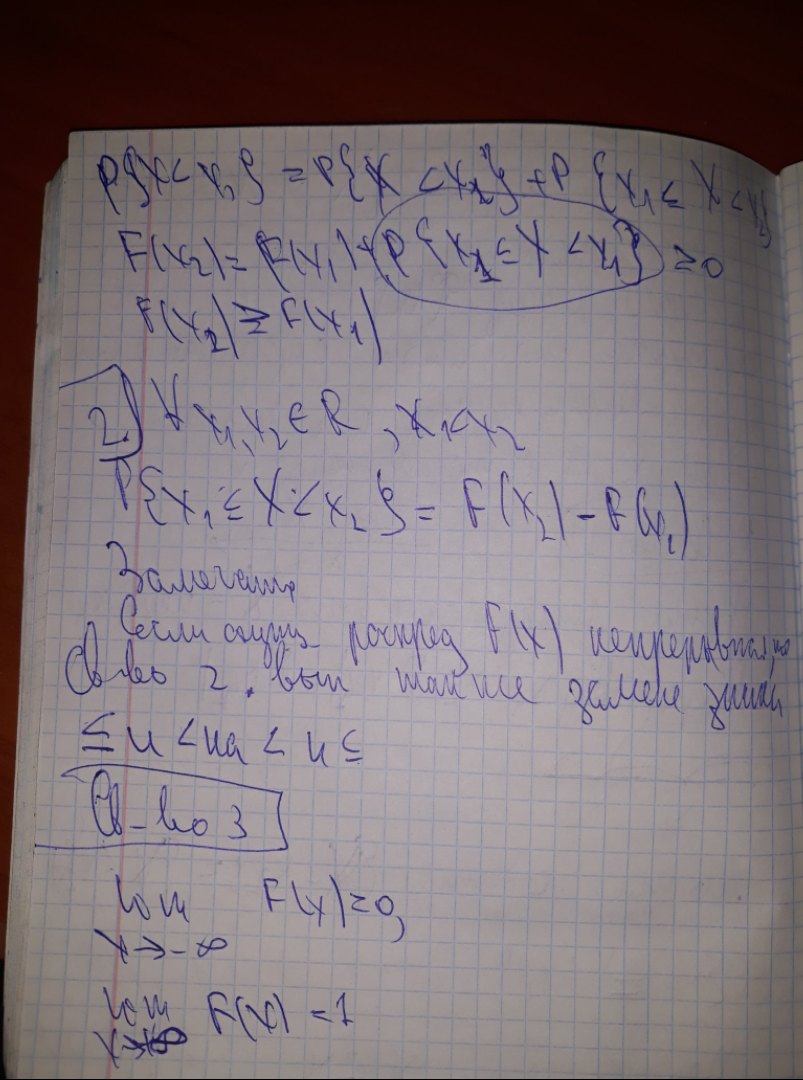 P{X < x₁} = P{X < x₂} + P {x₁ ≤ X < x₂}
F(x₂) = F(x₁) + P{x₁ ≤ X < x₁} ≥ 0
F(x₂) ≥ F(x₁)
2) ∀ x₁, x₂ ∈ R, x₁ < x₂
P{x₁ ≤ X < x₂} = F(x₂) - F(x₁)
Замечание
Если распред F(x) непрерывная, то
Св-во 2. вып также замене знаки
≤ и < на < и ≤
Св-во 3
lim F(x) = 0,
x → -∞
lim F(x) = 1
x → +∞